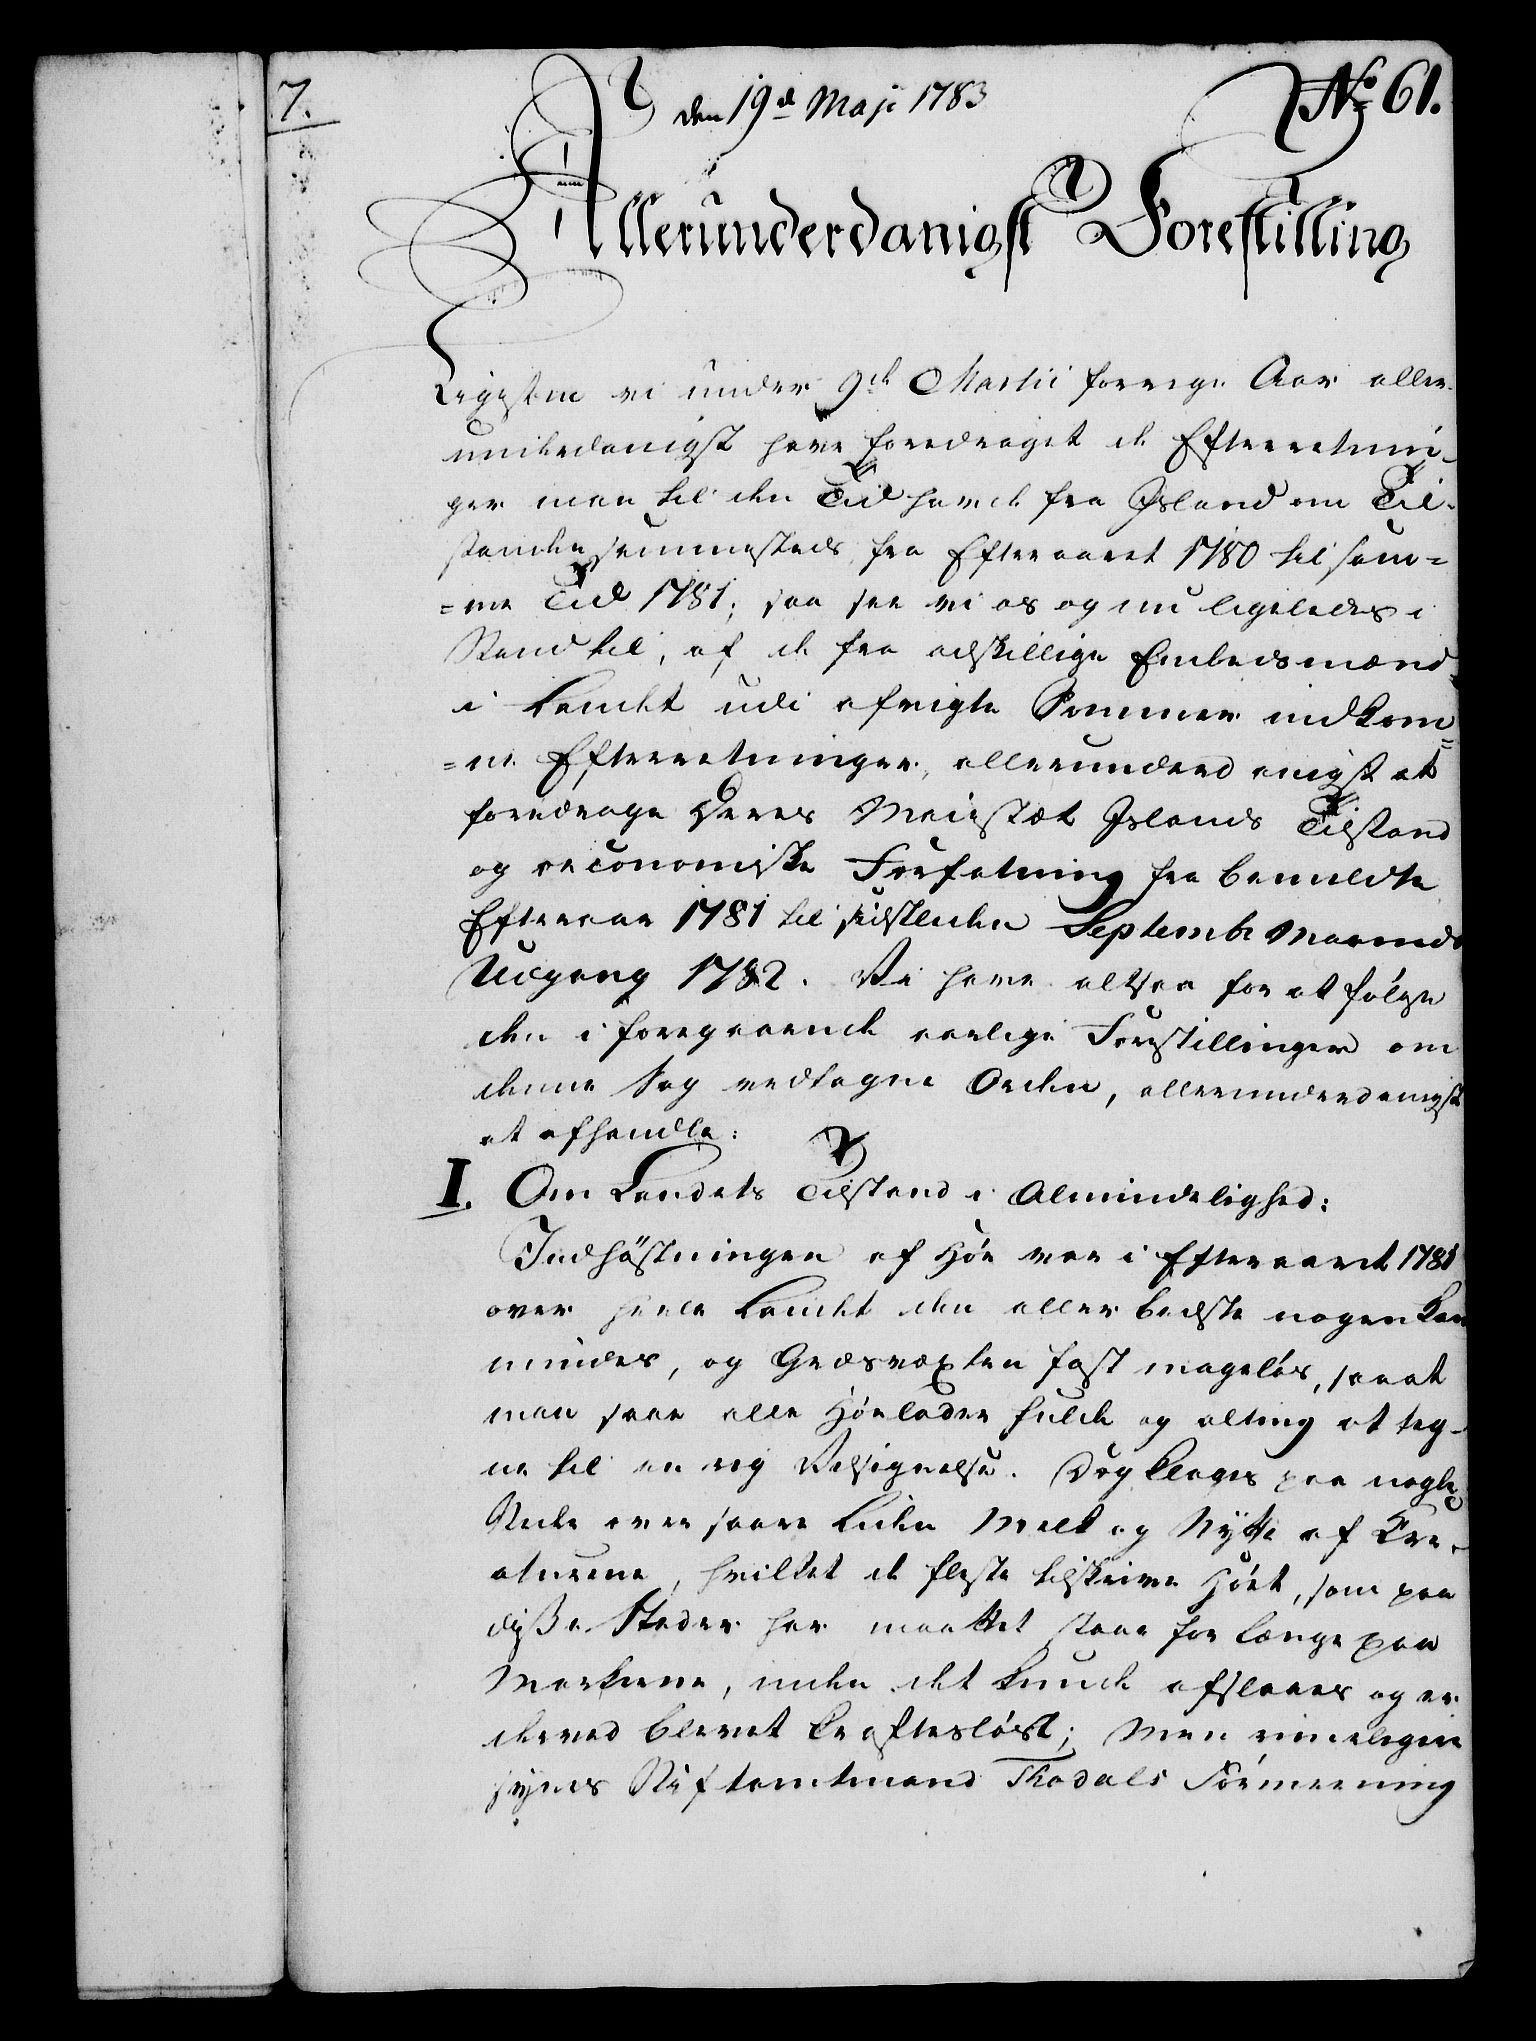 7.
den 19de Maji 1783
No 61.
Allerunderdanigst Forestilling
Ligesom vi under 9de Martii forrige Aar aller-
underdanigst have foredraget de Efterretnin-
ger man til den Tid havde fra Island om Til-
standen sammesteds fra Efteraaret 1780 til sam=
=me Tid 1781; saa see vi os og nu ligeledes i
Stand til, af de fra adskillige Embedsmænd
i Landet udi afvigte Sommer indkom=
=ne Efterretninger, allerunderdanigst at
foredrage Deres Majestæt Islands Tilstand
og oeconomiske Forfatning fra bemeldte
Efteraar 1781 til sidstleden Septembr Maaneds
Udgang 1782. Vi have altsaa for at følge
den i foregaaende aarlige Forestillinger om
denne Sag vedtagne Orden, allerunderdanigst
at afhandle:
I. Om Landets Tilstand i Almindelighed:
Indhöstningen af Höe var i Efteraaret 1781
over heele Landet den allerbedste nogen kan
mindes, og Græsvæxten fast mageløs, saa at
man saae alle Höelader fulde og alting at teg-
ne til en rig Velsignelse. Dog klages paa nogle
Steder over saare liden Melk og Nytte af Krea-
aturene, hvilket de fleste tilskrive Höet, som paa
disse Steder har maattet staae for længe paa
Markerne, inden det kunde afslaaes og er
derved blevet kraftesløst; Men rimeligere
synes Stiftamtmand Thodals Formeening